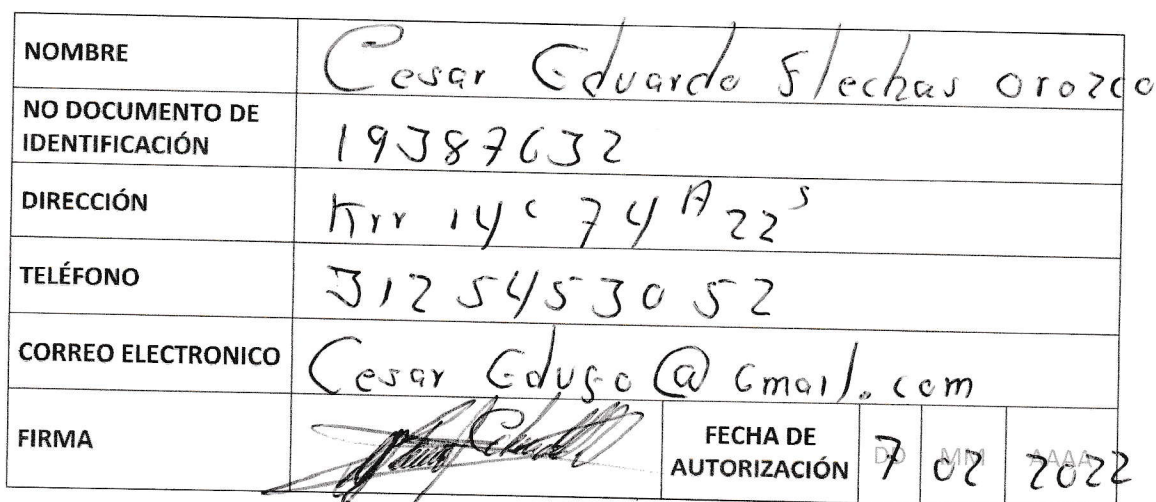 NOMBRE Cesar Eduardo Flechas Orozco
NO DOCUMENTO DE
IDENTIFICACIÓN 19387632
DIRECCIÓN Krr 14 c 74 A 22 S
TELÉFONO 312 5453052
CORREO ELECTRONICO
FIRMA
FECHA DE
AUTORIZACIÓN 7 02 2022
DD MM AAAA